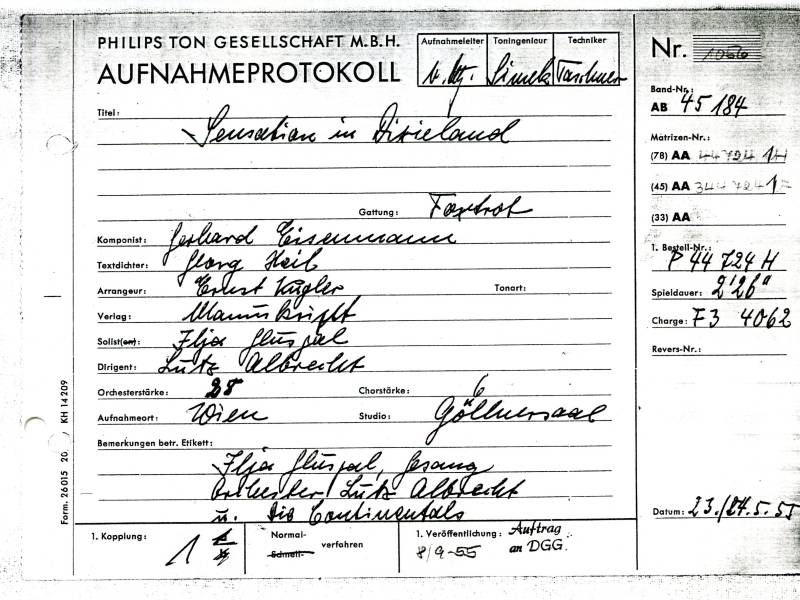 PHILIPS TON GESELLSCHAFT M.B.H.
AUFNAHMEPROTOKOLL
Aufnahmeleiter Toningenieur Techniker
Simek Taschner
Nr. 1056
Band-Nr.:
AB 45 184
Matrizen-Nr.:
(78) AA 44724 1H
(45) AA 344724 1
(33) AA
Titel: Sensation in Dixieland
Gattung: Foxtrot
Komponist: Gerhard Eisenmann
Textdichter: Georg Heib
Arrangeur: Ernst Kugler Tonart:
Verlag: Manuskript
Solist(en): Ilja Glusgal
Dirigent: Lutz Albrecht
Orchesterstärke: 28 Chorstärke: 6
Aufnahmeort: Wien Studio: Göllnersaal
Bemerkungen betr. Etikett:
Ilja Glusgal, Gesang
Orchester Lutz Albrecht
u. Die Continentals
1. Bestell-Nr.:
P 44 724 H
Spieldauer: 2'26"
Charge: F3 4062
Revers-Nr.:
Datum: 23./24.5.55
1. Kopplung: 1
Normal-
Schnell- verfahren
1. Veröffentlichung: Auftrag
8/9-55 an DGG.
Form. 26 015 20 KH 14 209